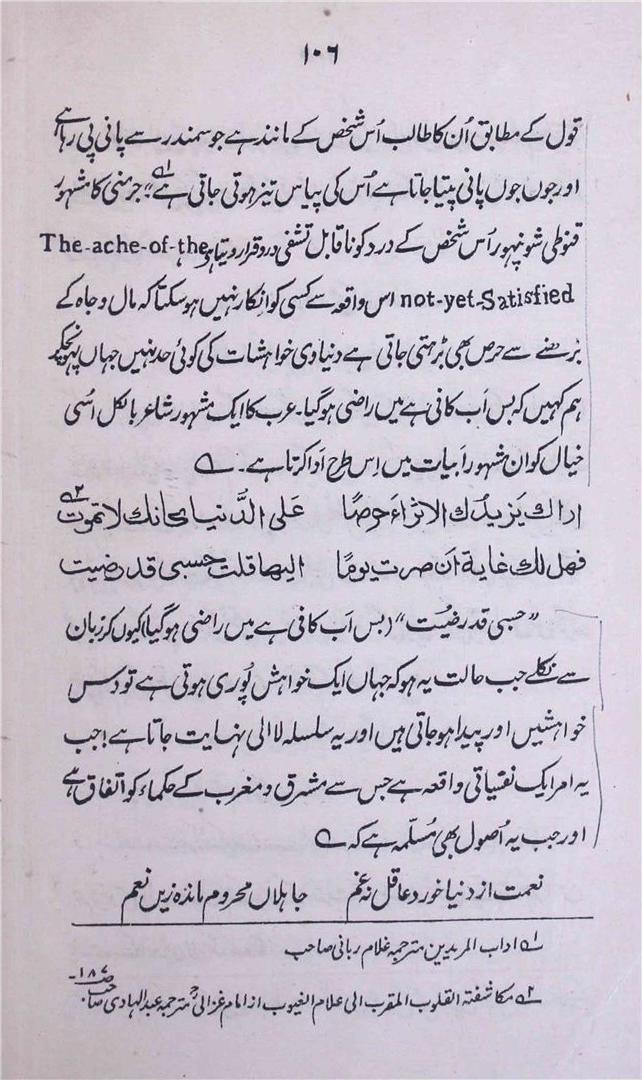 ۱۰۶
قول کے مطابق اُن کا طالب اُس شخص کے مانند ہے جو سمندر سے پانی پی رہا ہے
اور جوں جوں پانی پیتا جاتا ہے اُس کی پیاس تیز ہوتی جاتی ہے"۱ جرمنی کا مشہور
قنوطی شوپنہور اُس شخص کے درد کو ناقابل تشفی درد قرار دیتا ہو The-ache-of-the
not-yet-Satisfied اس واقعہ سے کسی کو انکار نہیں ہو سکتا کہ مال و جاہ کے
بڑھنے سے حرص بھی بڑہتی جاتی ہے دنیاوی خواہشات کی کوئی حد نہیں جہاں پہونچکر
ہم کہیں کہ بس اَب کافی ہے میں راضی ہو گیا۔ عرب کا ایک مشہور شاعر بالکل اسُی
خیال کو ان شہور اَبیات میں اِس طرح اَدا کرتا ہے۔ ؎
اراك يَزيدُك الاثراءَ حرصًا علی الدُّنيا كانك لا تموت ۲؎
فهل لك غاية اَن صرت يومًا اليها قلت حسبی قد رضيت
"حسبی قد رضیُت" (بس اَب کافی ہے میں راضی ہو گیا) کیوں کر زبان
سے نکلے جب حالت یہ ہو کہ جہاں ایک خواہش پُوری ہوتی ہے تو دس
خواہشیں اور پیدا ہو جاتی ہیں اور یہ سلسلہ لا الی نہایت جاتا ہے! جب
یہ امر ایک نفسیاتی واقعہ ہے جس سے مشرق و مغرب کے حکماء کو اتفاق ہے
اور جب یہ اُصول بھی مُسلّمہ ہے کہ ؎
نعمت از دنیا خورد عاقل نہ غم جاہلاں محروم ماندہ زیں نعم
۱؎ اداب المریدین مترجمہ غلام ربانی صاحب
۲؎ مکاشفتہ القلوب المقرب الی علام الغیوب از امام غزالیؒ مترجمہ عبدالہادی صاحب ص ۱۸۷۔